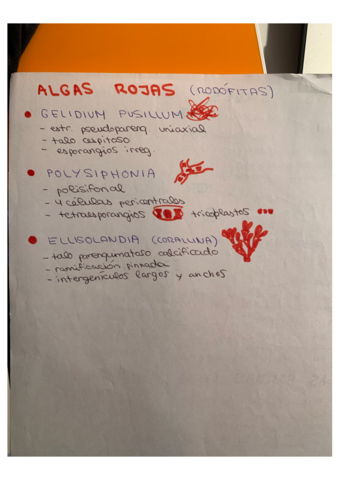 ALGAS ROJAS (RODÓFITAS)
GELIDIUM PUSILLUM
- estr. pseudoparenq. uniaxial
- talo cespitoso
- esporangios irreg.
POLYSIPHONIA
- polisifonal
- 4 células pericentrales
- tetraesporangios tricoblastos
ELLISOLANDIA (CORALLINA)
- talo parenquimatoso calcificado
- ramificación pinnada
- intergenículos largos y anchos